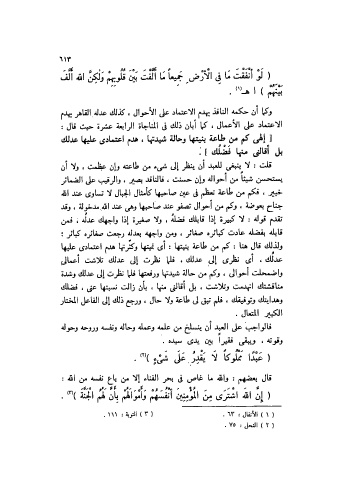 ٦١٣
( لَوْ أَنْفَقْتَ مَا فِى الْأَرْضِ جَمِيعاً مَا أَلَّفْتَ بَيْنَ قُلُوبِهِمْ وَلَكِنَّ اللهَ أَلَّفَ
بَيْنَهُمْ ) ا هـ(١) .
وكما أن حكمه النافذ يهدم الاعتماد على الأحوال ، كذلك عدله القاهر يهدم
الاعتماد على الأعمال ، كما أبان ذلك فى المناجاة الرابعة عشرة حيث قال :
{ إلهى كم من طاعة بنيتها وحالة شيدتها ، هدم اعتمادى عليها عدلك
بل أقالنى منها فضْلُك } .
قلت : لا ينبغى للعبد أن ينظر إلى شىء من طاعته وإن عظمت ، ولا أن
يستحسن شيئاً من أحواله وإن حسنت ، فالناقد بصير ، والرقيب على الضمائر
خبير ، فكم من طاعة تعظم فى عين صاحبها كأمثال الجبال لا تساوى عند الله
جناح بعوضة ، وكم من أحوال تصفو عند صاحبها وهى عند الله مدخولة ، وقد
تقدم قوله : لا كبيرة إذا قابلك فضلُه ، ولا صغيرة إذا واجهك عدلُه ، فمن
قابله بفضله عادت كبائره صغائر ، ومن واجهه بعدله رجعت صغائره كبائر ؛
ولذلك قال هنا : كم من طاعة بنيتها : أى ثبتها وكثّرتها هدم اعتمادى عليها
عدلُك . أى نظرى إلى عدلك ، فلما نظرت إلى عدلك تلاشت أعمالى
واضمحلت أحوالى ، وكم من حالة شيدتها ورفعتها فلما نظرت إلى عدلك وشدة
مناقشتك انهدمت وتلاشت ، بل أقالنى منها ، بأن زالت نسبتها عنى ، فضلك
وهدايتك وتوفيقك ، فلم تبق لى طاعة ولا حال ، ورجع ذلك إلى الفاعل المختار
الكبير المتعال .
فالواجب على العبد أن ينسلخ من علمه وعمله وحاله ونفسه وروحه وحوله
وقوته ، ويبقى فقيراً بين يدى سيده .
( عَبْدًا مَمْلُوكاً لَا يَقْدِرُ عَلَى شَىْءٍ )(٢) .
قال بعضهم : والله ما غاص فى بحر الفناء إلا من باع نفسه من الله :
( إِنَّ اللهَ اشْتَرَى مِنَ الْمُؤْمِنِينَ أَنْفُسَهُمْ وَأَمْوَالَهُمْ بِأَنَّ لَهُمُ الْجَنَّةَ )(٣) .
( ١ ) الأنفال : ٦٣ . ( ٣ ) التوبة : ١١١ .
( ٢ ) النحل : ٧٥ .